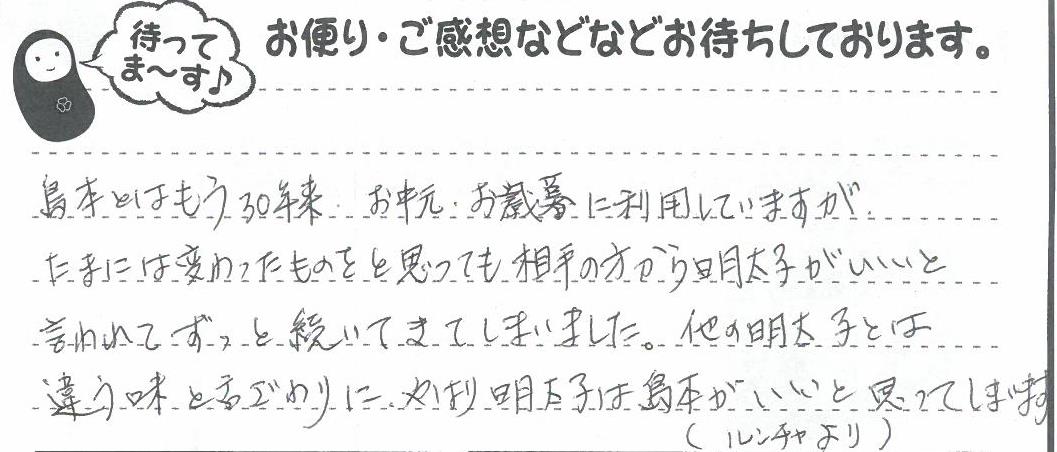 待って
ま～す♪
お便り・ご感想などなどお待ちしております。
島本とはもう30年来、お中元・お歳暮に利用していますが、
たまには変わったものをと思っても相手の方から明太子がいいと
言われてずっと続いてきてしまいました。他の明太子とは
違う味と舌ざわりに、やはり明太子は島本がいいと思ってしまいます
(ルンチャより)